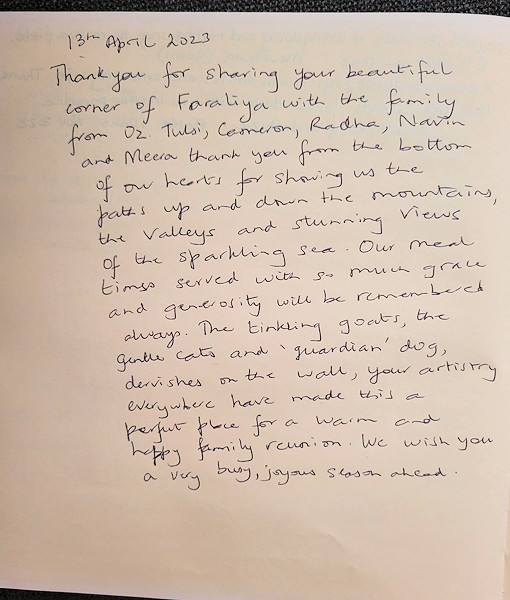 13th April 2023
Thank you for sharing your beautiful
corner of Faraliya with the family
from Oz. Tulsi, Cameron, Radha, Navin
and Meera thank you from the bottom
of our hearts for showing us the
paths up and down the mountains,
the valleys and stunning views
of the sparkling sea. Our meal
times served with so much grace
and generosity will be remembered
always. The tinkling goats, the
gentle cats and 'guardian' dog,
dervishes on the wall, your artistry
everywhere have made this a
perfect place for a warm and
happy family reunion. We wish you
a very busy, joyous season ahead.